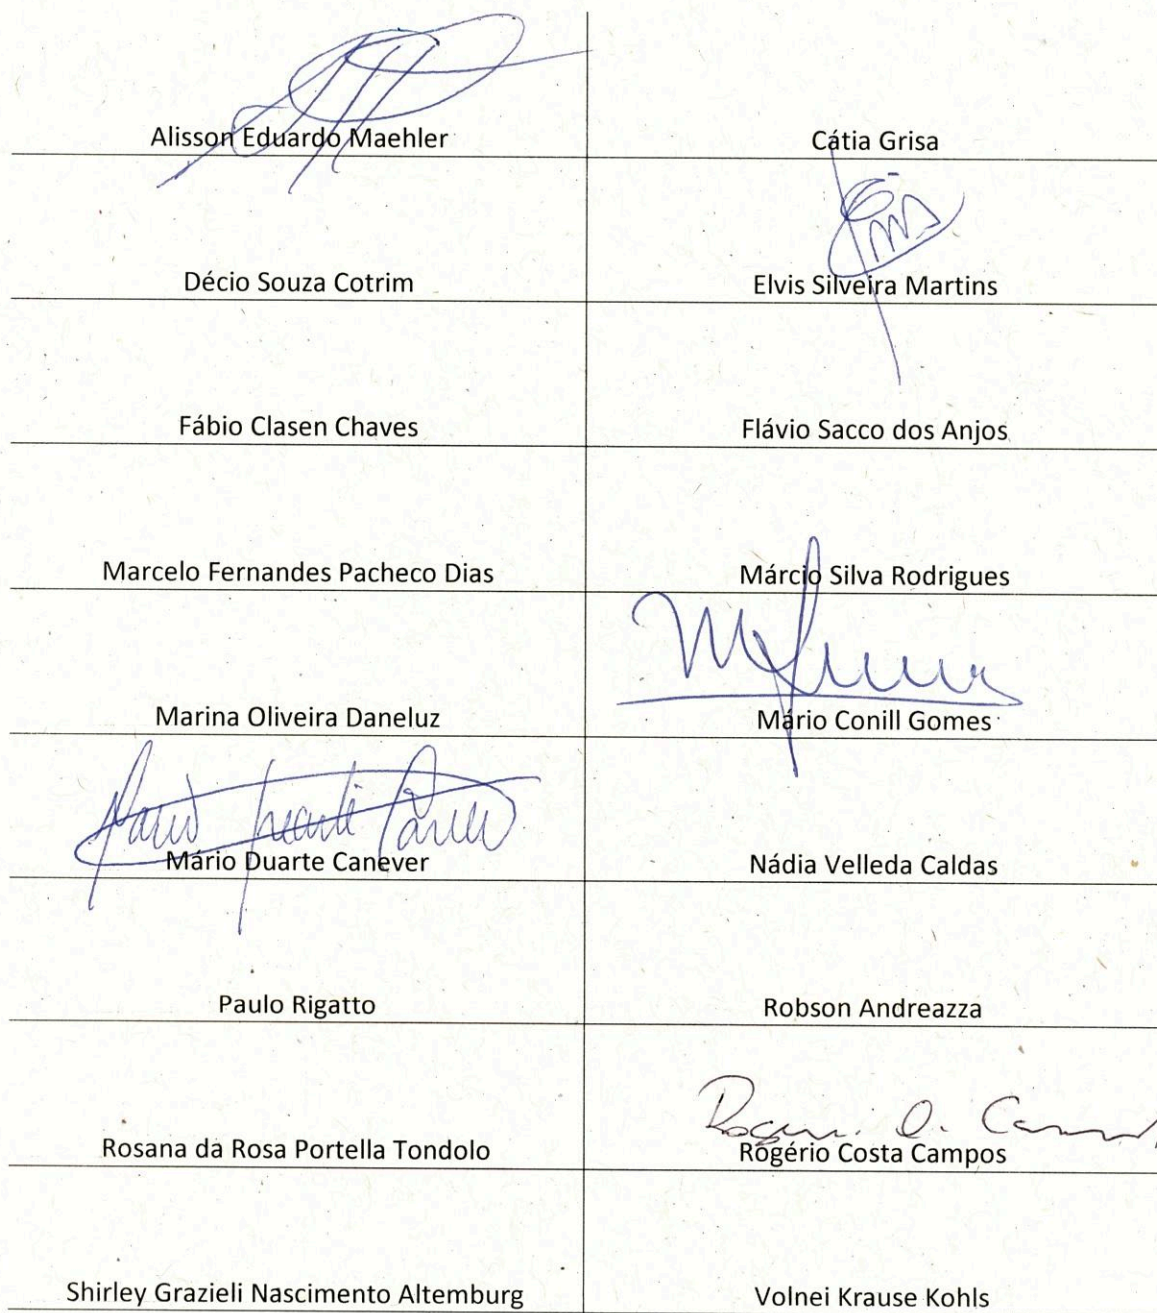 Alisson Eduardo Maehler
Cátia Grisa
Décio Souza Cotrim
Elvis Silveira Martins
Fábio Clasen Chaves
Flávio Sacco dos Anjos
Marcelo Fernandes Pacheco Dias
Márcio Silva Rodrigues
Marina Oliveira Daneluz
Mário Conill Gomes
Mário Duarte Canever
Nádia Velleda Caldas
Paulo Rigatto
Robson Andreazza
Rosana da Rosa Portella Tondolo
Rogério Costa Campos
Shirley Grazieli Nascimento Altemburg
Volnei Krause Kohls